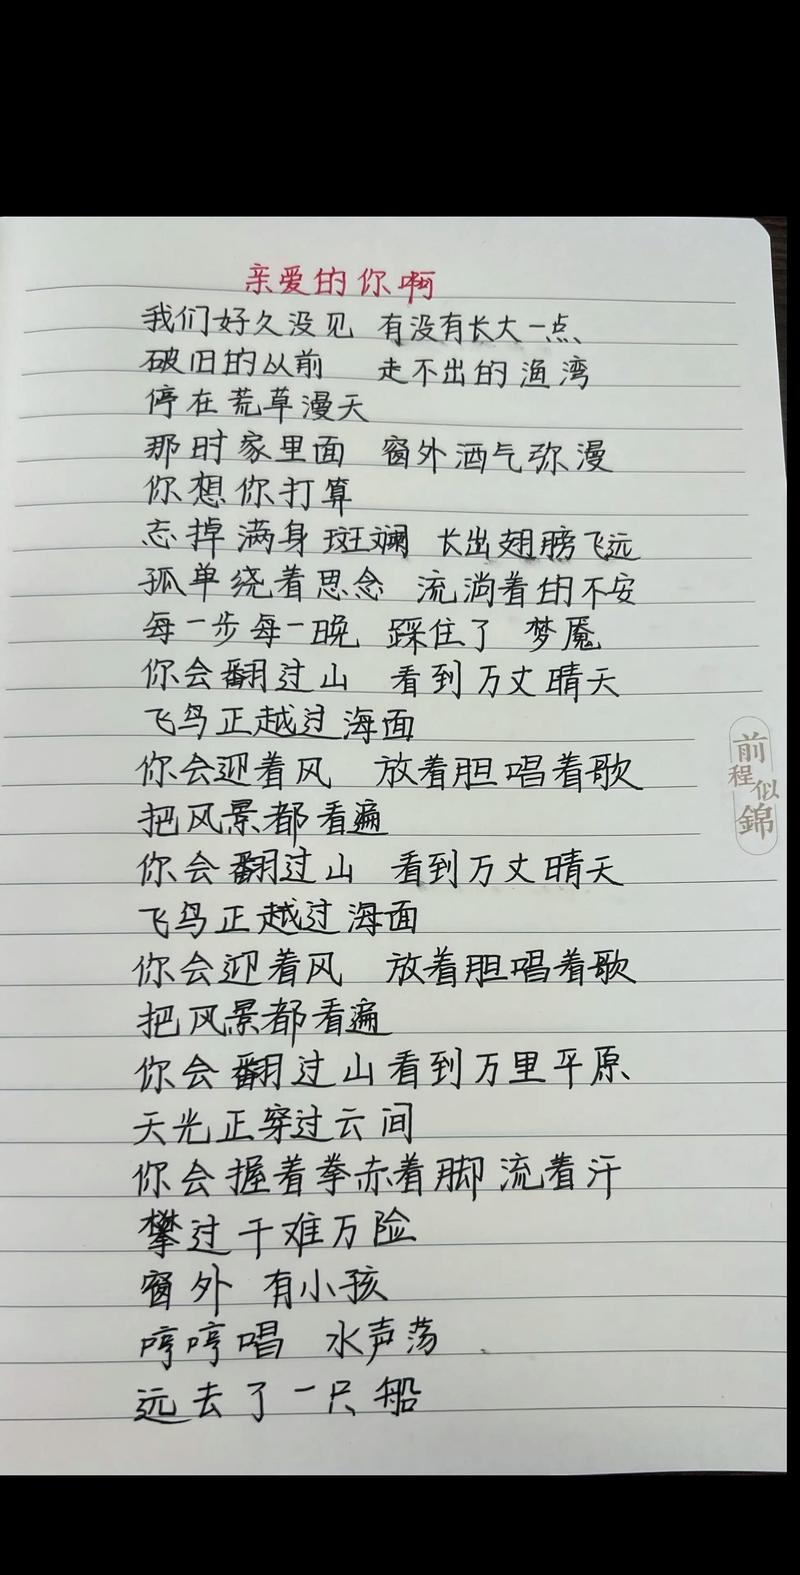 亲爱的你啊
我们好久没见 有没有长大一点
破旧的从前 走不出的渔湾
停在荒草漫天
那时家里面 窗外酒气弥漫
你想你打算
忘掉满身斑斓 长出翅膀飞远
孤单绕着思念 流淌着的不安
每一步每一晚 踩住了 梦魇
你会翻过山 看到万丈晴天
飞鸟正越过海面
你会迎着风 放着胆唱着歌
把风景都看遍
你会翻过山 看到万丈晴天
飞鸟正越过海面
你会迎着风 放着胆唱着歌
把风景都看遍
你会翻过山看到万里平原
天光正穿过云间
你会握着拳赤着脚流着汗
攀过千难万险
窗外 有小孩
哼哼唱 水声荡
远去了一只船
前程似錦